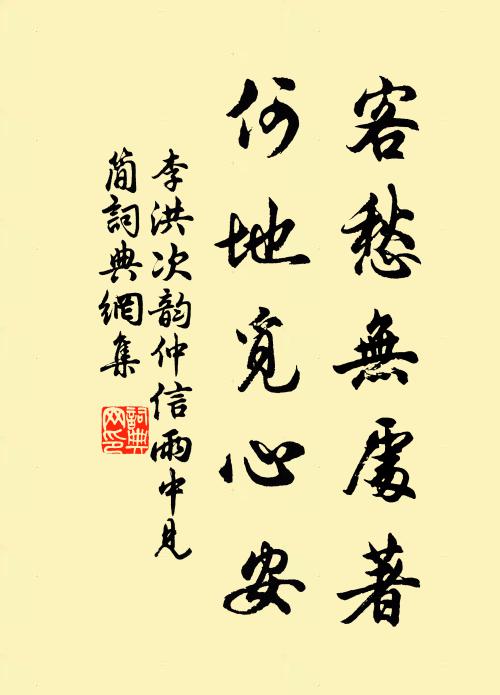 客愁無處著
何地覓心安
李洪次韵仲信雨中見
簡詞典網集
詞典
网印